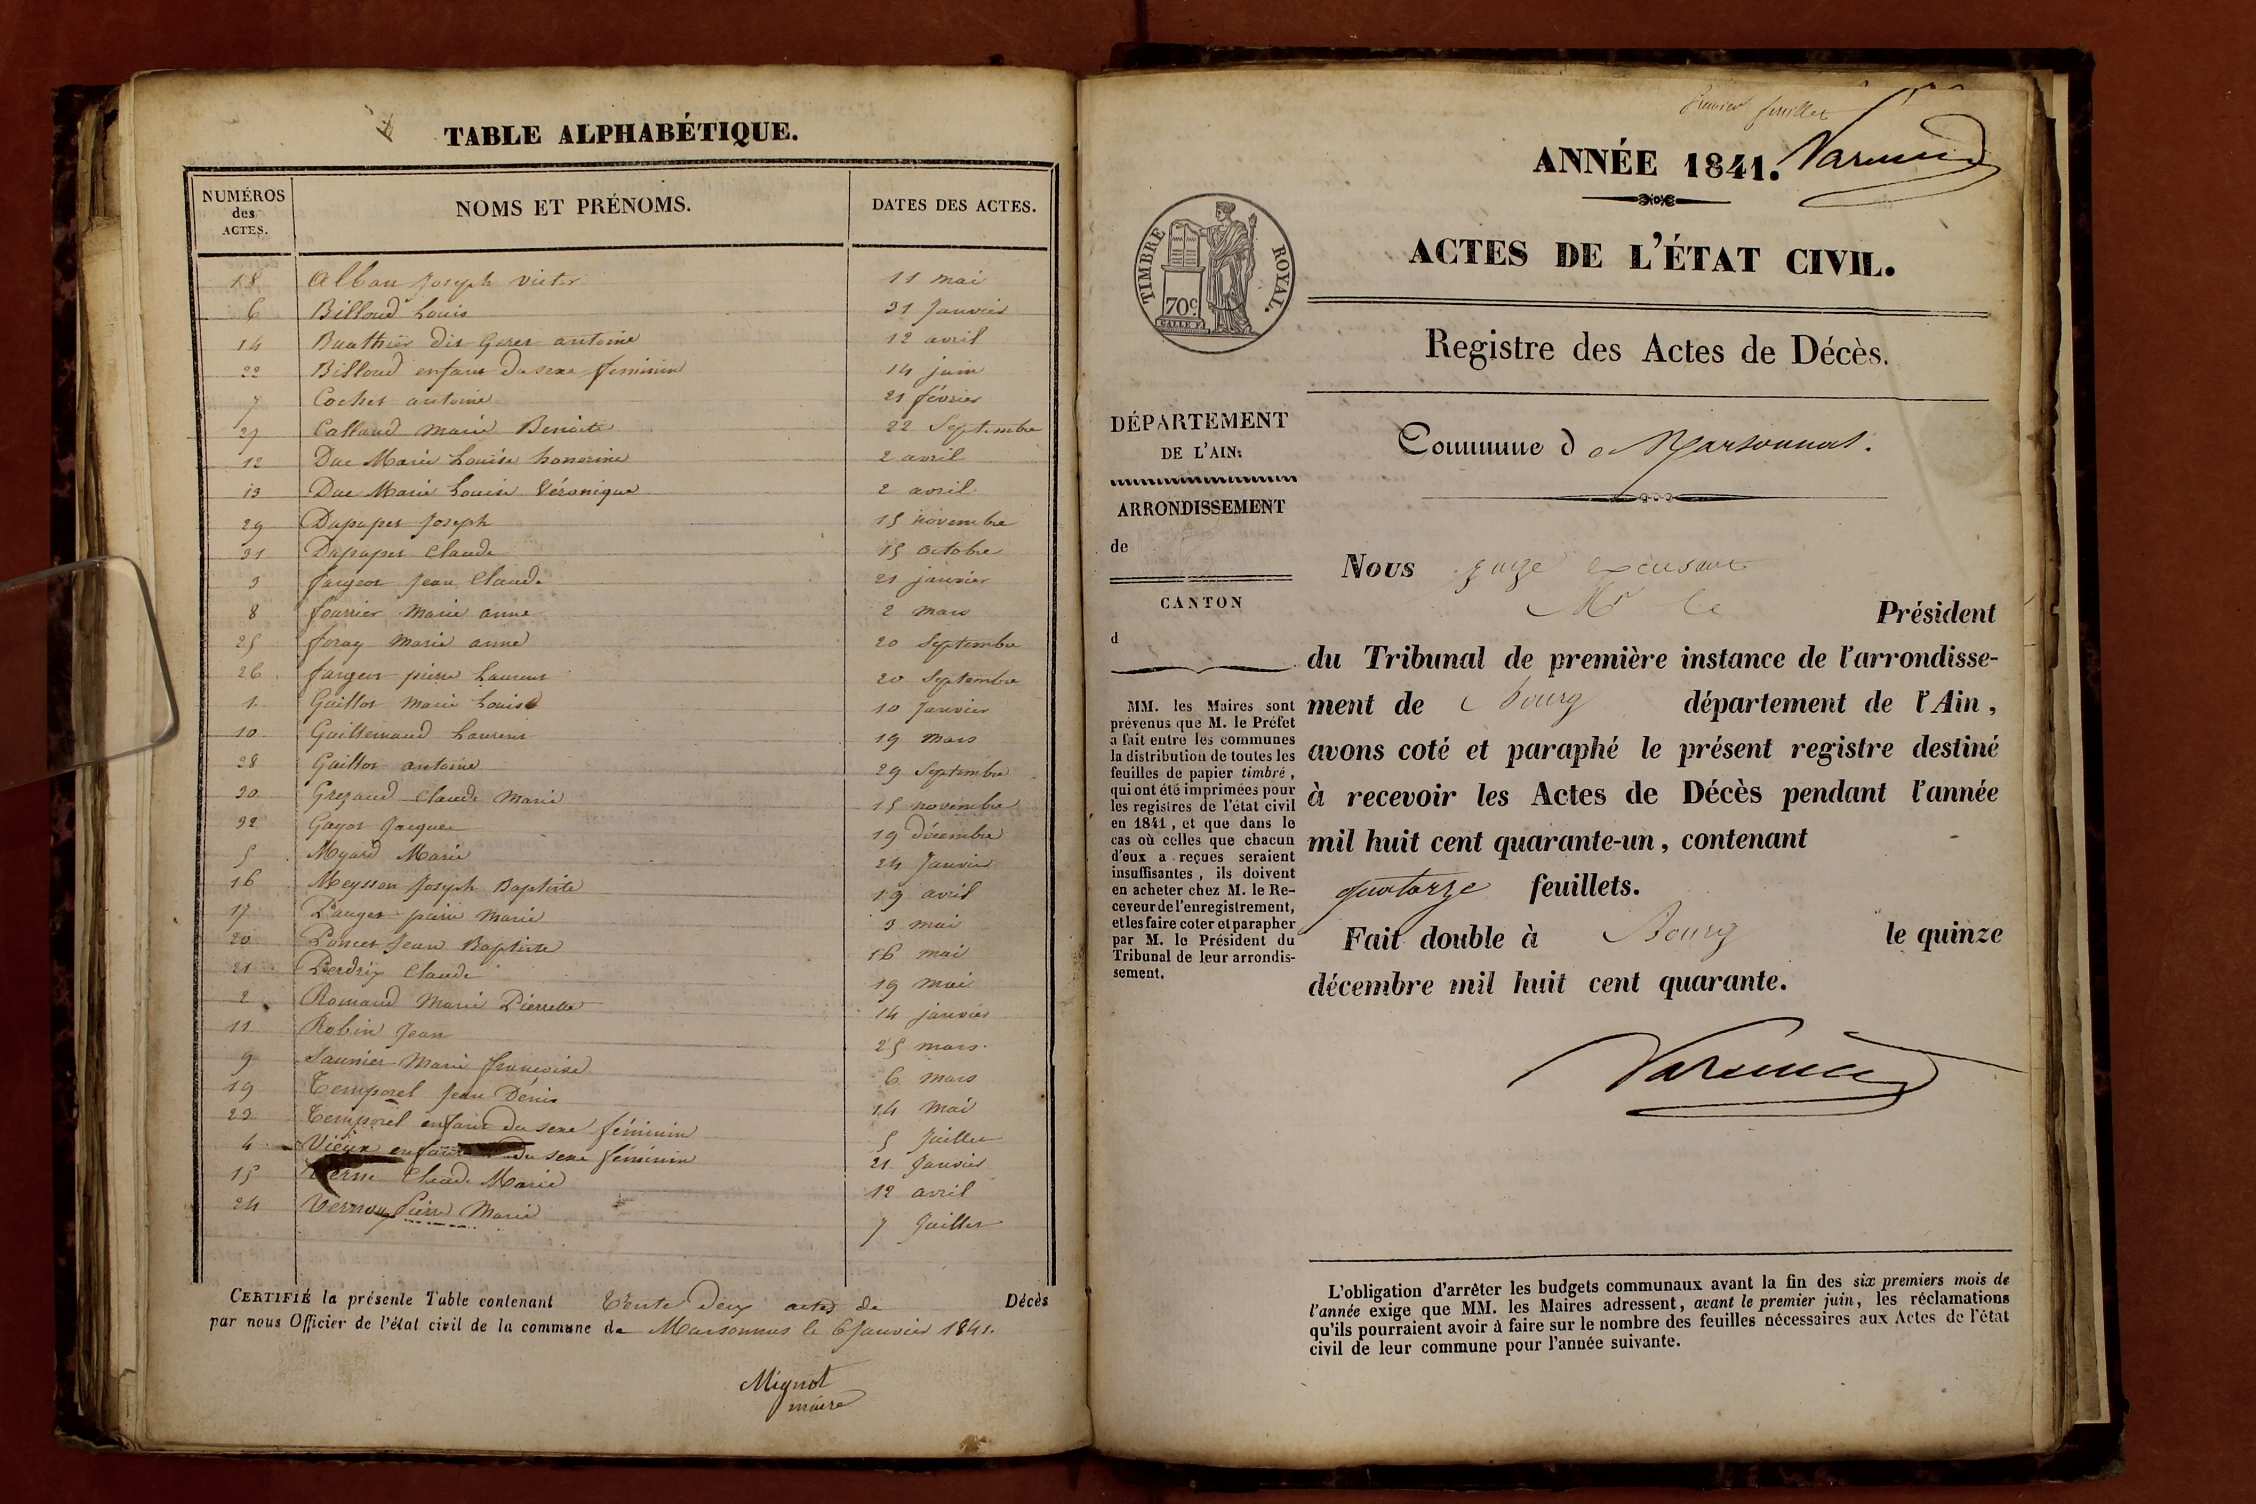 TABLE ALPHABÉTIQUE.
NUMÉROS
des
ACTES.
NOMS ET PRÉNOMS.
DATES DES ACTES.
18 Alban Joseph Victor 11 mai
6 Billoud Louis 31 Janvier
14 Buathier dit Geres antoine 12 avril
22 Billoud enfant du sexe feminin 14 juin
7 Cochet antoine 21 février
27 Callaud Marie Benoite 22 Septembre
12 Duc Marie Louise honorine 2 avril
13 Duc Marie Louise Véronique 2 avril
29 Dupupet Joseph 15 novembre
31 Dupupet Claude 15 octobre
3 fargeot Jean Claude 21 janvier
8 fourrier Marie anne 2 mars
25 foray Marie anne 20 Septembre
26 fargeot pierre Laurent 20 Septembre
1 Guillot Marie Louise 10 Janvier
10 Guillemaud Laurent 19 mars
28 Guillot antoine 29 Septembre
30 Grezaud Claude Marie 15 novembre
32 Gayot Jacques 19 décembre
5 Myard Marie 24 Janvier
16 Meysson Joseph Baptiste 19 avril
17 Pauget pierre Marie 3 mai
20 Poncet Jean Baptiste 16 mai
21 Perdrix Claude 19 mai
2 Romand Marie Pierrette 14 janvier
11 Robin Jean 25 mars
9 Saunier Marie françoise 6 mars
19 Temporel Jean Dénis 14 mai
23 Temporel enfant du sexe féminin 5 Juillet
4 Vieux enfant du sexe féminin 21 Janvier
15 Verne Claude Marie 12 avril
24 Vernoux Pierre Marie 7 Juillet
CERTIFIÉ la présente Table contenant Trente deux actes de Décès
par nous Officier de l'état civil de la commune de Marsonnas le 6 Janvier 1841.
Mignot
maire
premier feuillet
ANNÉE 1841.
Varenne
TIMBRE ROYAL.
70c
ACTES DE L'ÉTAT CIVIL.
Registre des Actes de Décès.
DÉPARTEMENT
DE L'AIN.
Commune de Marsonnas.
ARRONDISSEMENT
de
CANTON
d
MM. les Maires sont
prévenus que M. le Préfet
a fait entre les communes
la distribution de toutes les
feuilles de papier timbré,
qui ont été imprimées pour
les registres de l'état civil
en 1841, et que dans le
cas où celles que chacun
d'eux a reçues seraient
insuffisantes, ils doivent
en acheter chez M. le Re-
ceveur de l'enregistrement,
et les faire coter et parapher
par M. le Président du
Tribunal de leur arrondis-
sement.
Nous juge
Mr le Président
du Tribunal de première instance de l'arrondisse-
ment de Bourg département de l'Ain,
avons coté et paraphé le présent registre destiné
à recevoir les Actes de Décès pendant l'année
mil huit cent quarante-un, contenant
quatorze feuillets.
Fait double à Bourg le quinze
décembre mil huit cent quarante.
Varenne
L'obligation d'arrêter les budgets communaux avant la fin des six premiers mois de
l'année exige que MM. les Maires adressent, avant le premier juin, les réclamations
qu'ils pourraient avoir à faire sur le nombre des feuilles nécessaires aux Actes de l'état
civil de leur commune pour l'année suivante.